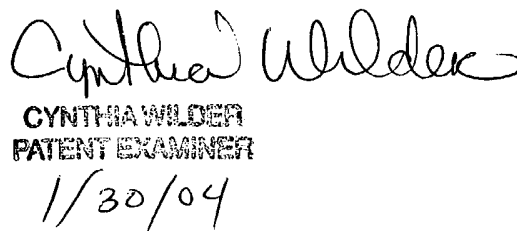 Cynthia Wilder
CYNTHIA WILDER
PATENT EXAMINER
1/30/04